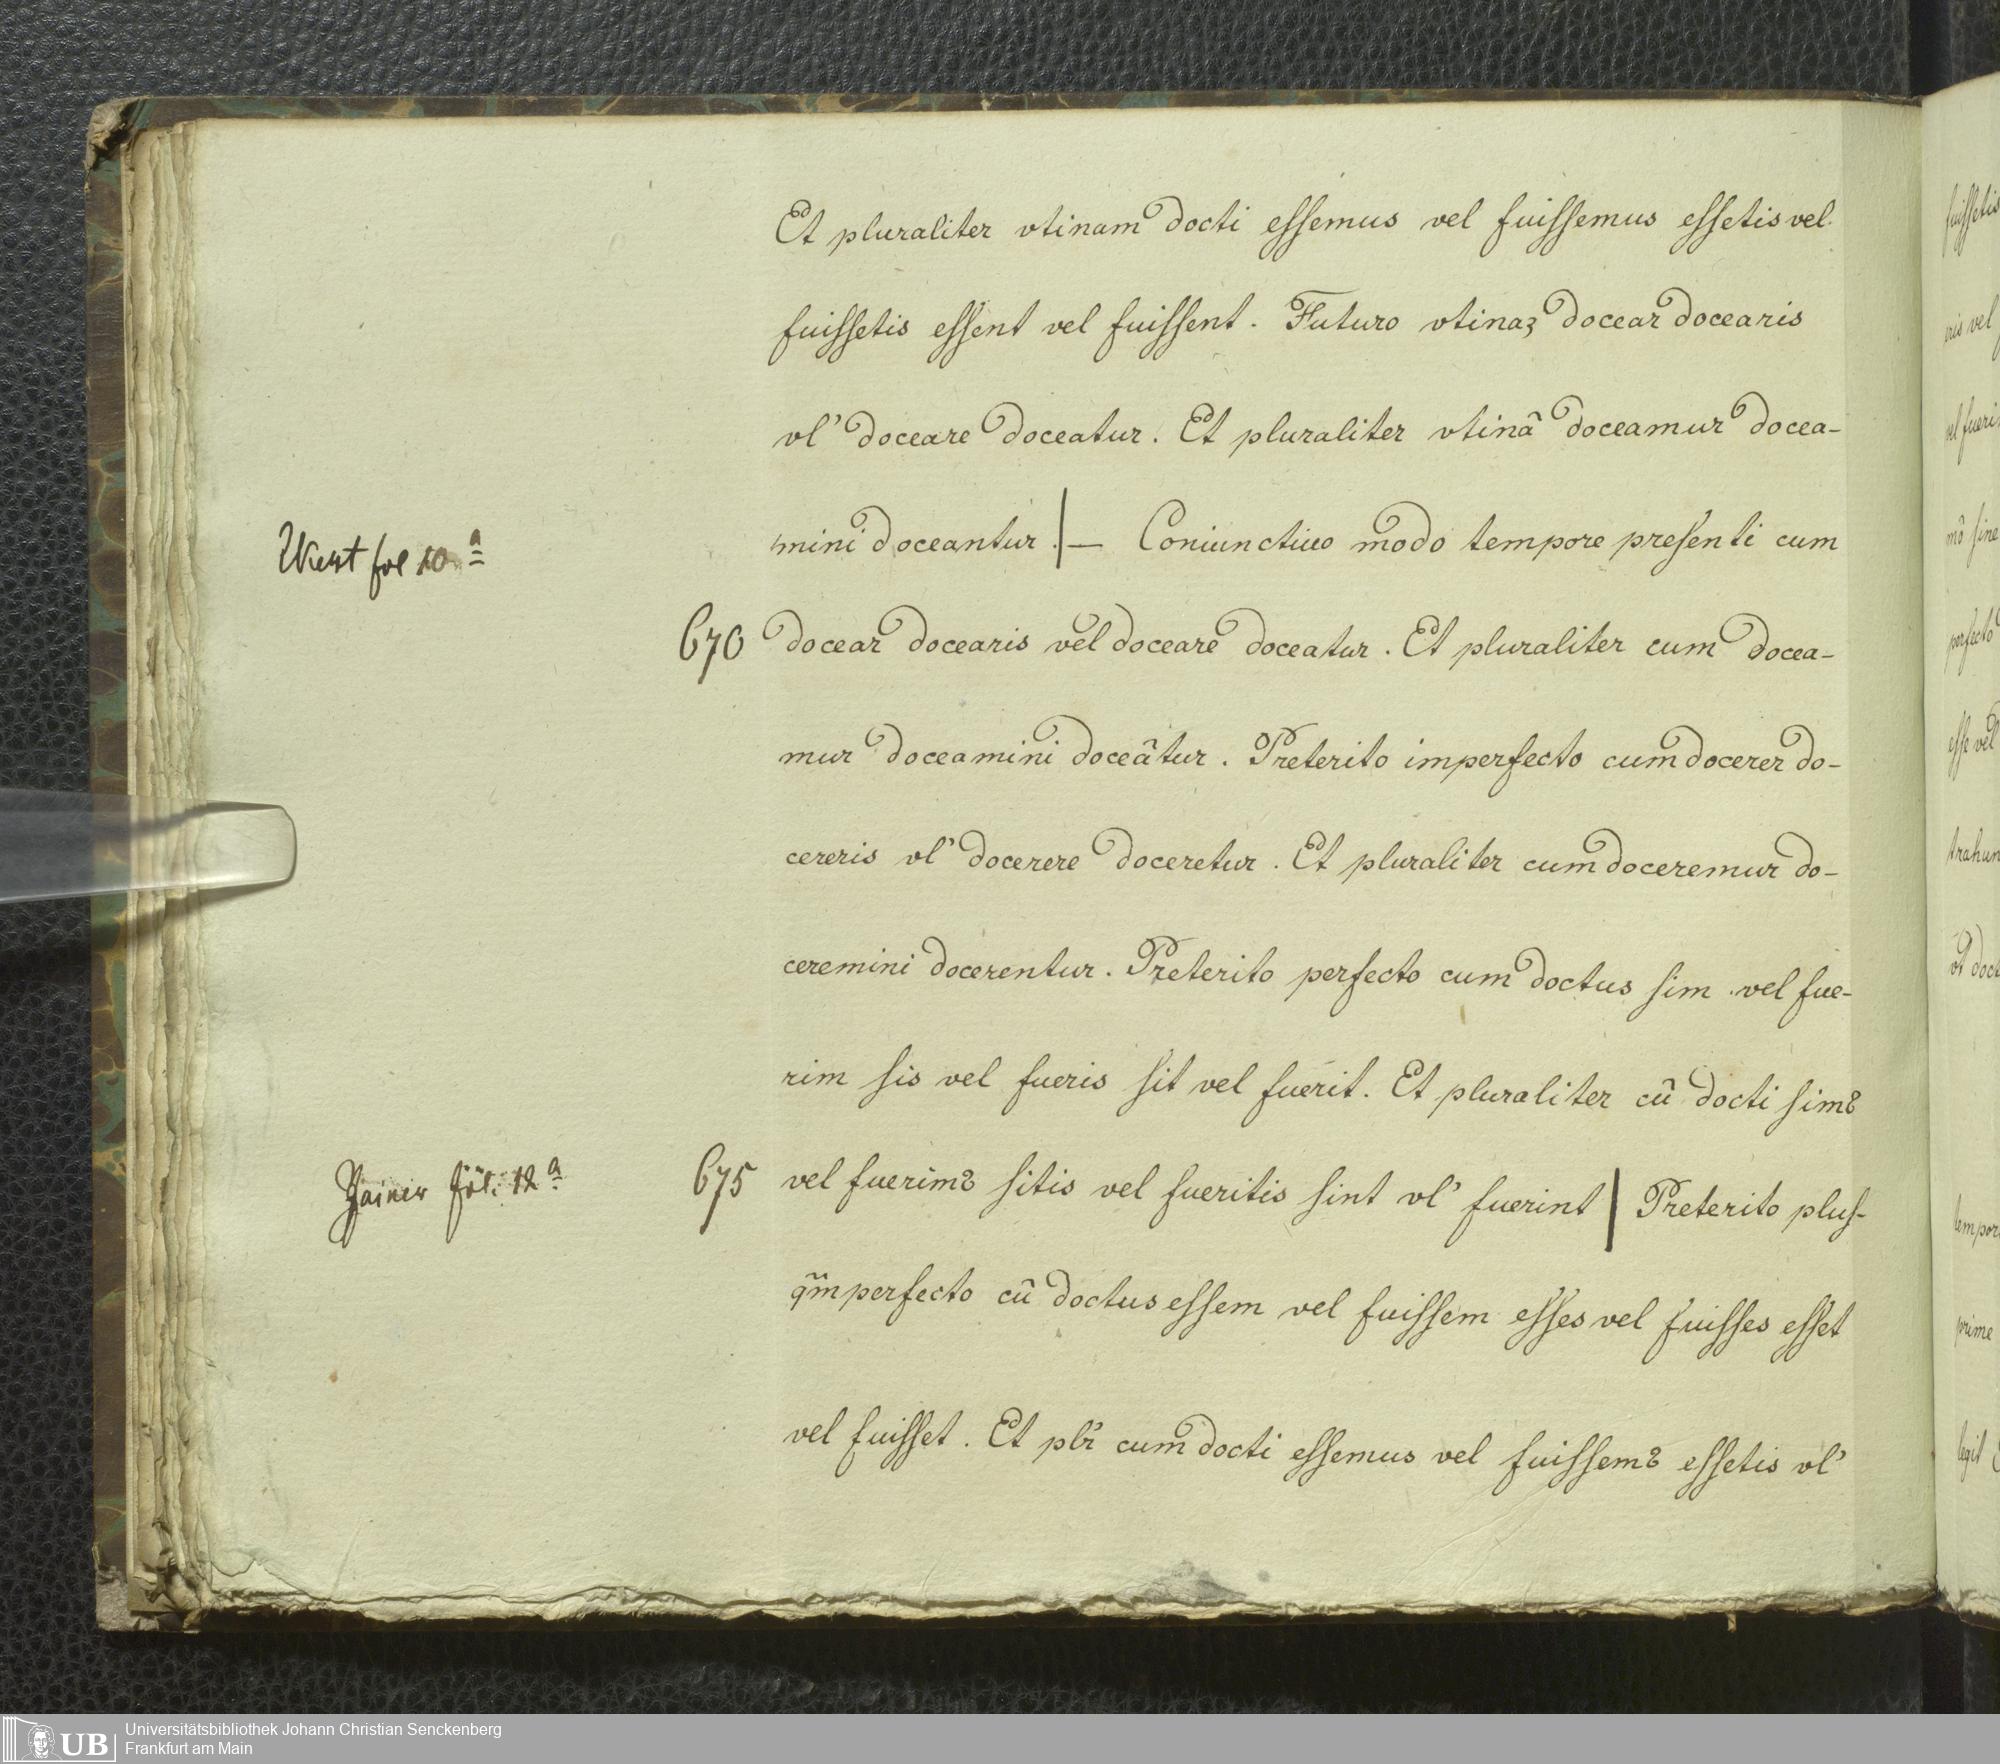 Et pluraliter vtinam docti essemus vel fuissemus essetis vel
fuissetis essent vel fuissent. Futuro vtinaꝫ docear docearis
vl’ doceare doceatur. Et pluraliter vtinã doceamur docea-
mini doceantur. |— Coniunctiuo modo tempore presenti cum
fol 10 a
670 docear docearis vel doceare doceatur. Et pluraliter cum docea-
mur doceamini doceãtur. Preterito imperfecto cum docerer do-
cereris vl’ docerere doceretur. Et pluraliter cum doceremur do-
ceremini docerentur. Preterito perfecto cum doctus sim vel fue-
rim sis vel fueris sit vel fuerit. Et pluraliter cũ docti simꝰ
Zainer fol. 12 a
675 vel fuerimꝰ sitis vel fueritis sint vl’ fuerint | Preterito plus-
q̃m perfecto cũ doctus essem vel fuissem esses vel fuisses esset
vel fuisset. Et plr̃ cum docti essemus vel fuissemꝰ essetis vl’
fuissetis
eris vel
vel fueri
mõ sine
perfecto
esse vel
trahun
vt doct
tempor
prime
legit
UB
Universitätsbibliothek Johann Christian Senckenberg
Frankfurt am Main